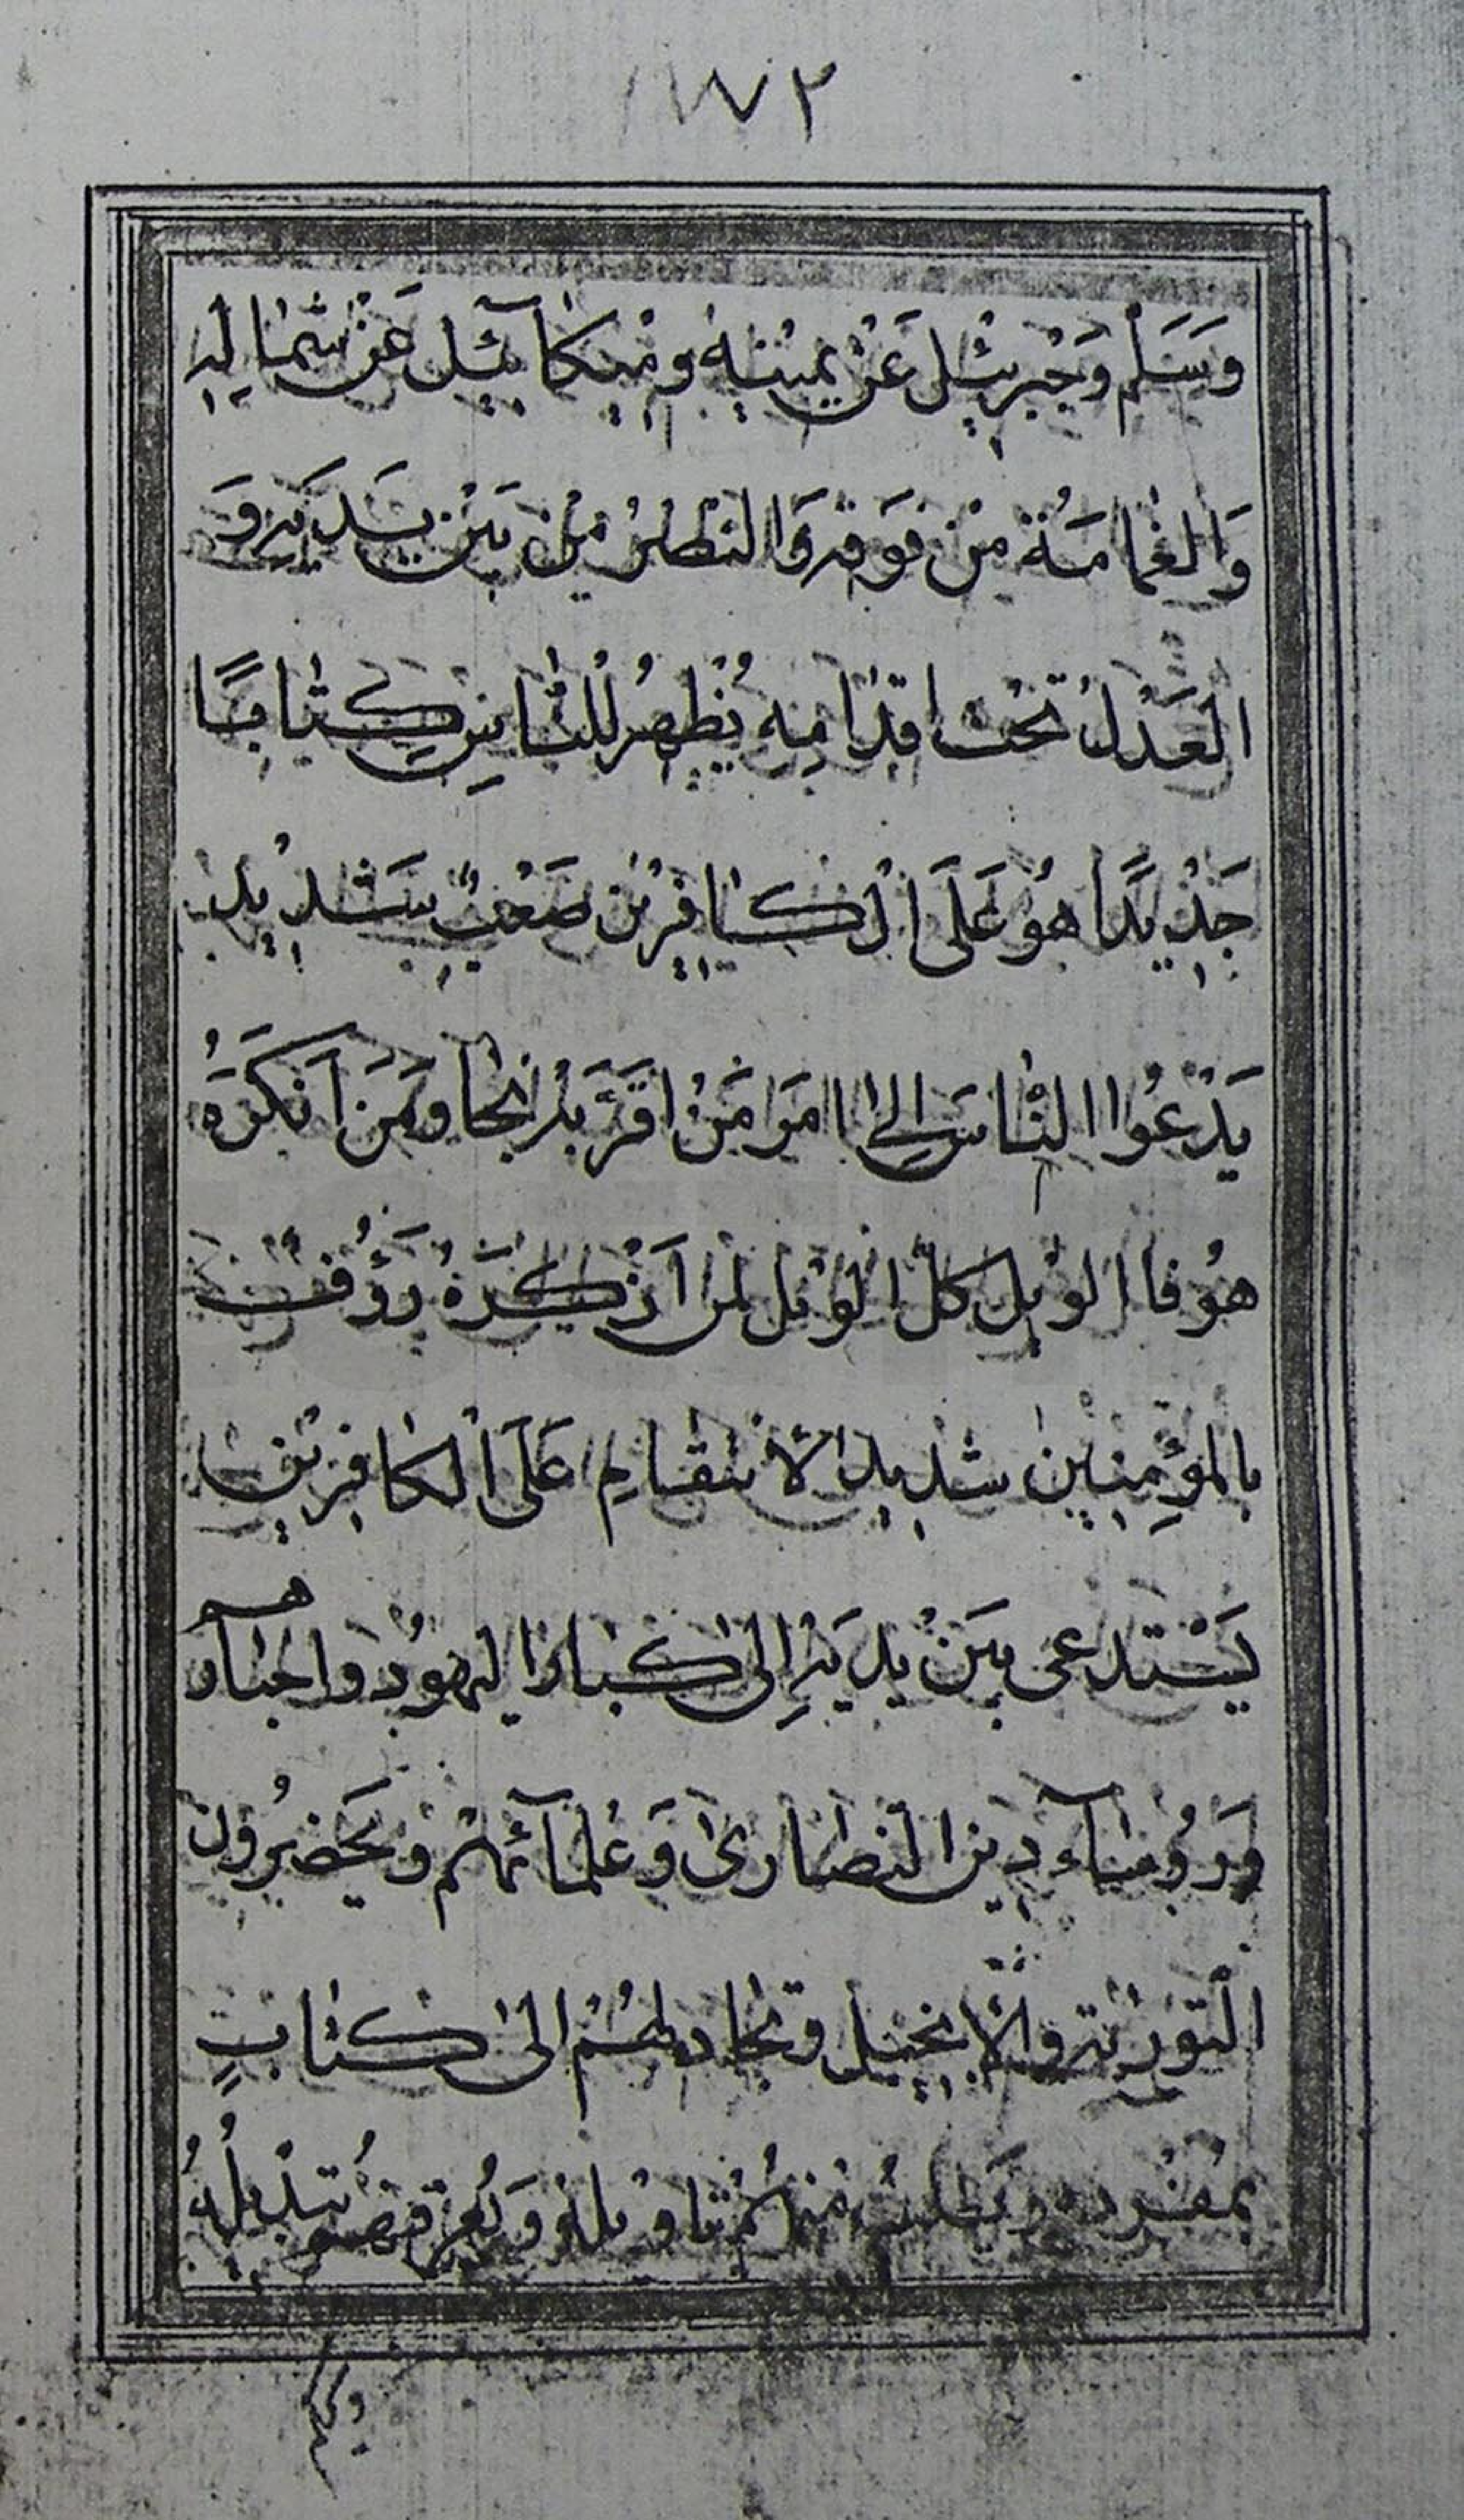 وَسَلَّم وَجَبْرَئِيْل عَنْ يَمِيْنِهٖ وَمِيْكَآئِيل عَنْ شِمَالِهٖ
وَالغَمَامَةُ مِنْ فَوْقِهٖ وَالنَّصْرُ مِنْ بَيْنِ يَدَيْهِ وَ
العَدْلُ تَحْتَ اَقْدَامِهٖ يُظْهِرُ لِلنَّاسِ كِتَابًا
جَدِيْدًا هُوَ عَلَى الْكَافِرِيْنَ صَعْبٌ شَدِيْد
يَدْعُوا النَّاسَ اِلىٰ اَمْرٍ مَنْ اَقَرَّ بِهٖ نَجَا وَمَنْ اَنْكَرَهُ
هُو فَا الوَيْل كُلّ الوَيْل لِمَن اَنْكَرَهُ رَؤُفٌ
بالمؤمِنِين شديد الاِنتقامِ عَلَى الكافِرِيْن
يَسْتدعى بَيْن يَدَيْهِ اِلىٰ كبار اليهود واحبارهم
وَرُوسآء دِين النصارىٰ وَعُلمآئهم وَيَحضُرُون
التورىة والانجيل وىجادلهُم الىٰ كتابٍ
تاويله تبديله
ويحكم